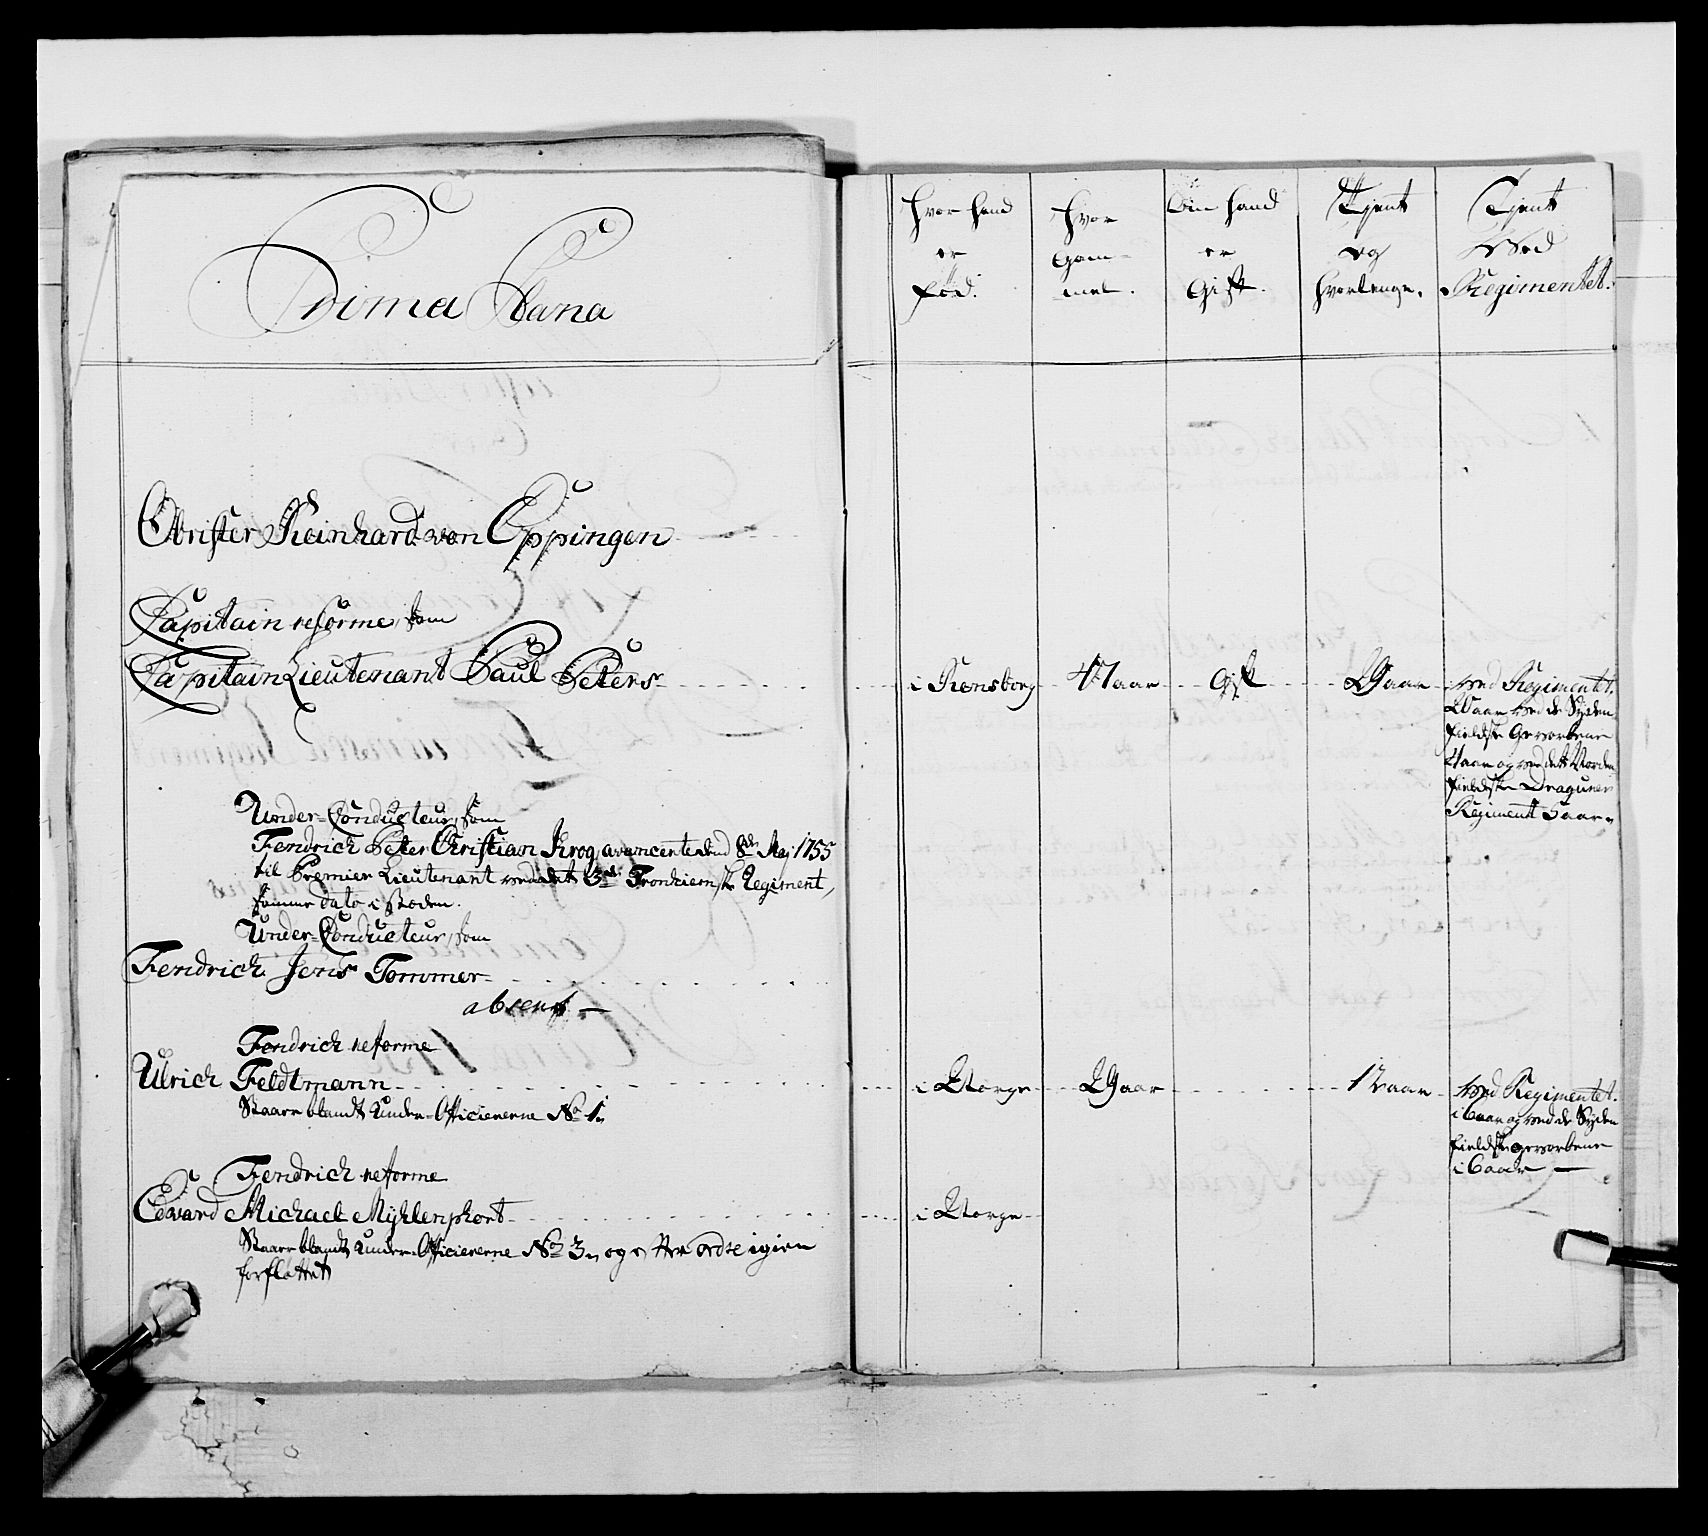 Prima Plana
Obrister Reinhard von Oppingen
Capitain reforme, som
Capitain Lieutenant Paul Peters
Under-Conducteur, som
Fendrich Peter Christian Krog, avancerte den 8de Maj 1755
til Premier Lieutenant ved det 3die Tronhiemske Regiment,
samme dato i Steden.
Under-Conducteur, som
Fendrich Jens Tommer
absent
Fendrich reforme
Ulrich Feldtmann
Staar blandt Under-Officiererne No 1.
Fendrich reforme
Edvard Michael Myhlenphort
Staar blandt Under-Officiererne No 3, og efter ordre igien
forfløttet
Hvor hand
er
fød.
Hvor
Gam-
mel.
Om hand
er
Gift.
Tjent
og
hvorlenge.
Tjent
Ved
Regimentet.
i Rensborg 47 aar Gift 29 aar ved Regimentet.
20 aar ved de Synden
fieldske Gevorbene
4 aar og ved det Norden
fieldske Draguner
Regiment 5 aar
i Norge 29 aar 12 aar ved Regimentet.
i 6 aar og ved de Synden
fieldske gevorbene
i 6 aar
i Norge